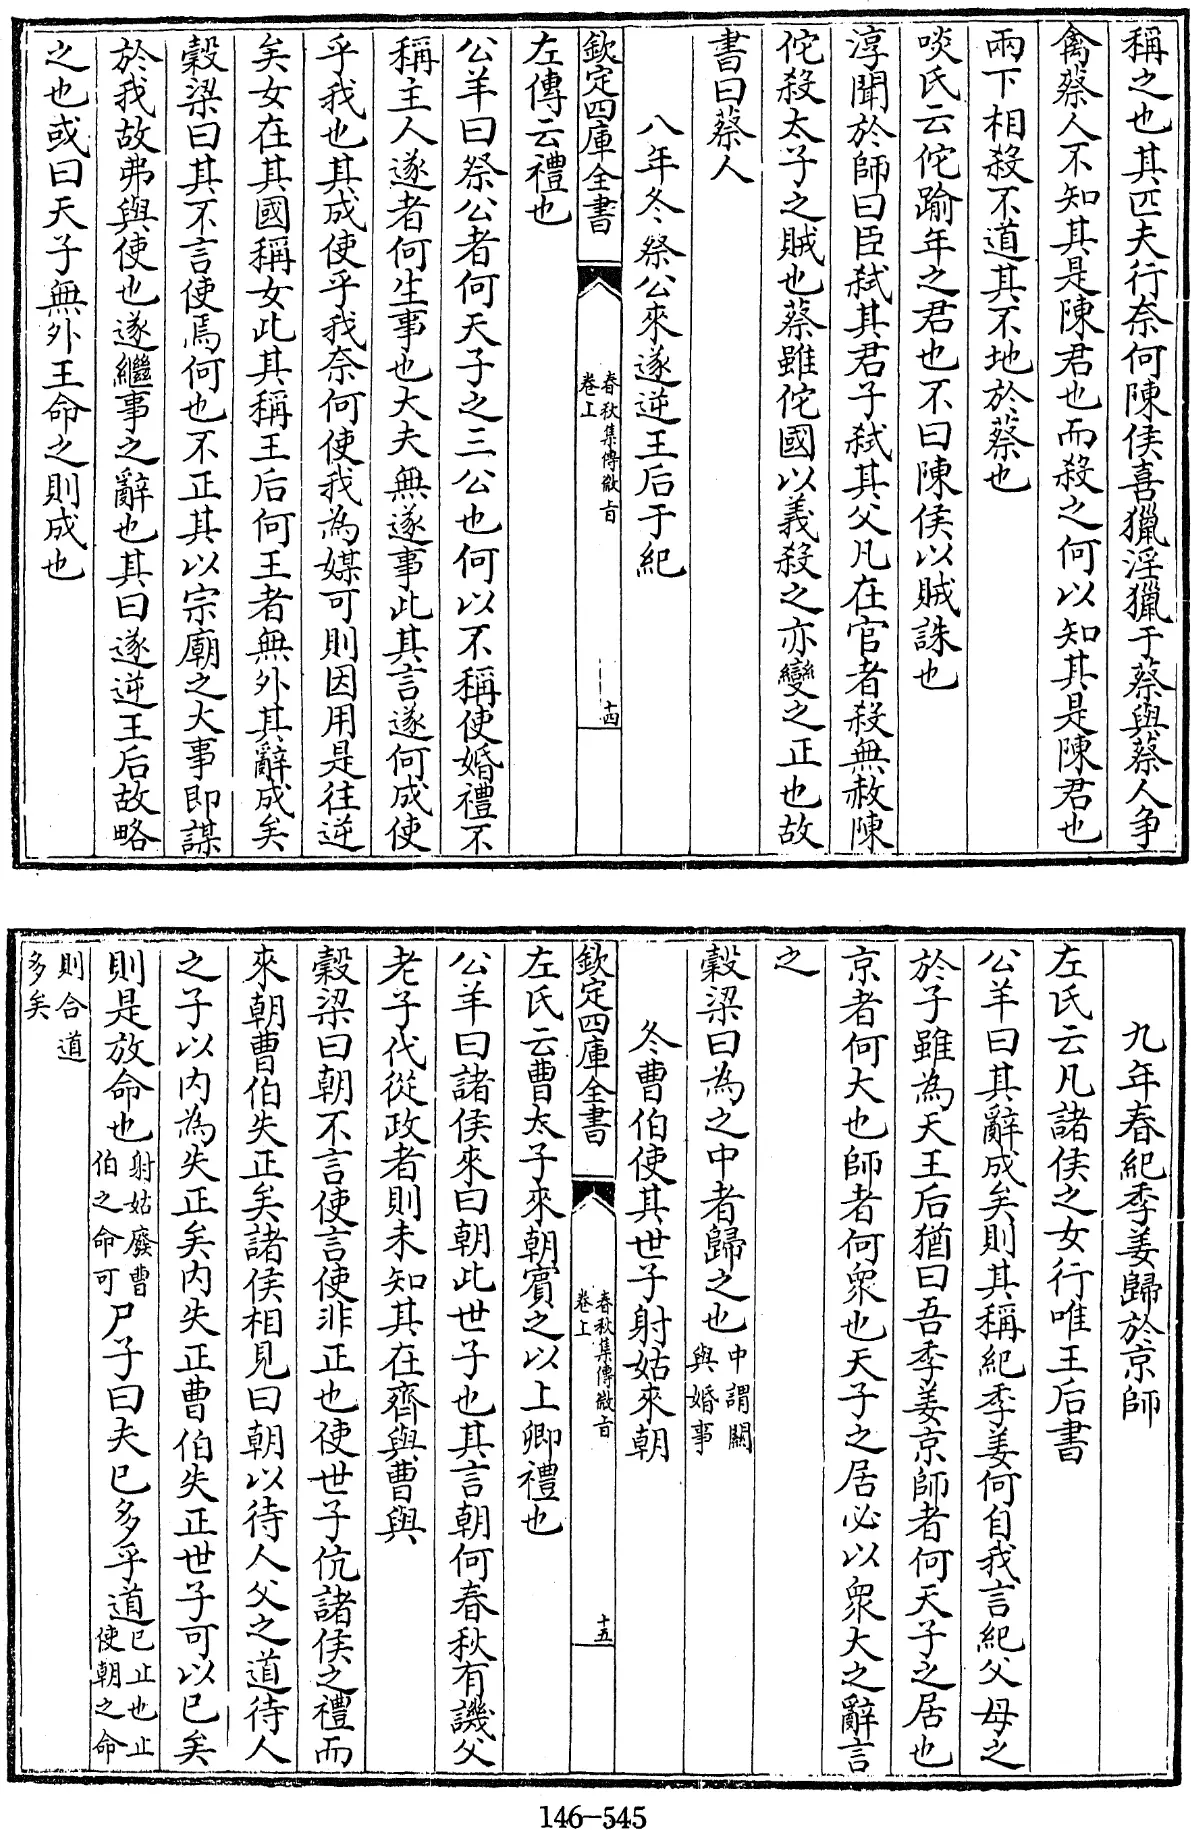 稱之也其匹夫行奈何陳侯喜獵淫獵于蔡與蔡人争
禽蔡人不知其是陳君也而殺之何以知其是陳君也
兩下相殺不道其不地於蔡也
啖氏云佗踰年之君也不曰陳侯以賊誅也
淳聞於師曰臣弑其君子弑其父凡在官者殺無赦陳
佗殺太子之賊也蔡雖佗國以義殺之亦變之正也故
書曰蔡人
八年冬祭公來遂逆王后于紀
欽定四庫全書
春秋集傳微旨
卷上
十四
左傳云禮也
公羊曰祭公者何天子之三公也何以不稱使婚禮不
稱主人遂者何生事也大夫無遂事此其言遂何成使
乎我也其成使乎我奈何使我為媒可則因用是往逆
矣女在其國稱女此其稱王后何王者無外其辭成矣
穀梁曰其不言使焉何也不正其以宗廟之大事即謀
於我故弗與使也遂繼事之辭也其曰遂逆王后故略
之也或曰天子無外王命之則成也
九年春紀季姜歸於京師
左氏云凡諸侯之女行唯王后書
公羊曰其辭成矣則其稱紀季姜何自我言紀父母之
於子雖為天王后猶曰吾季姜京師者何天子之居也
京者何大也師者何衆也天子之居必以衆大之辭言
之
穀梁曰為之中者歸之也中謂關
與婚事
冬曹伯使其世子射姑來朝
欽定四庫全書
春秋集傳微旨
卷上
十五
左氏云曹太子來朝賓之以上卿禮也
公羊曰諸侯來曰朝此世子也其言朝何春秋有譏父
老子代從政者則未知其在齊與曹與
穀梁曰朝不言使言使非正也使世子伉諸侯之禮而
來朝曹伯失正矣諸侯相見曰朝以待人父之道待人
之子以内為失正矣内失正曹伯失正世子可以已矣
則是放命也射姑廢曹
伯之命可尸子曰夫已多乎道已止也止
使朝之命
則合道
多矣
146-545